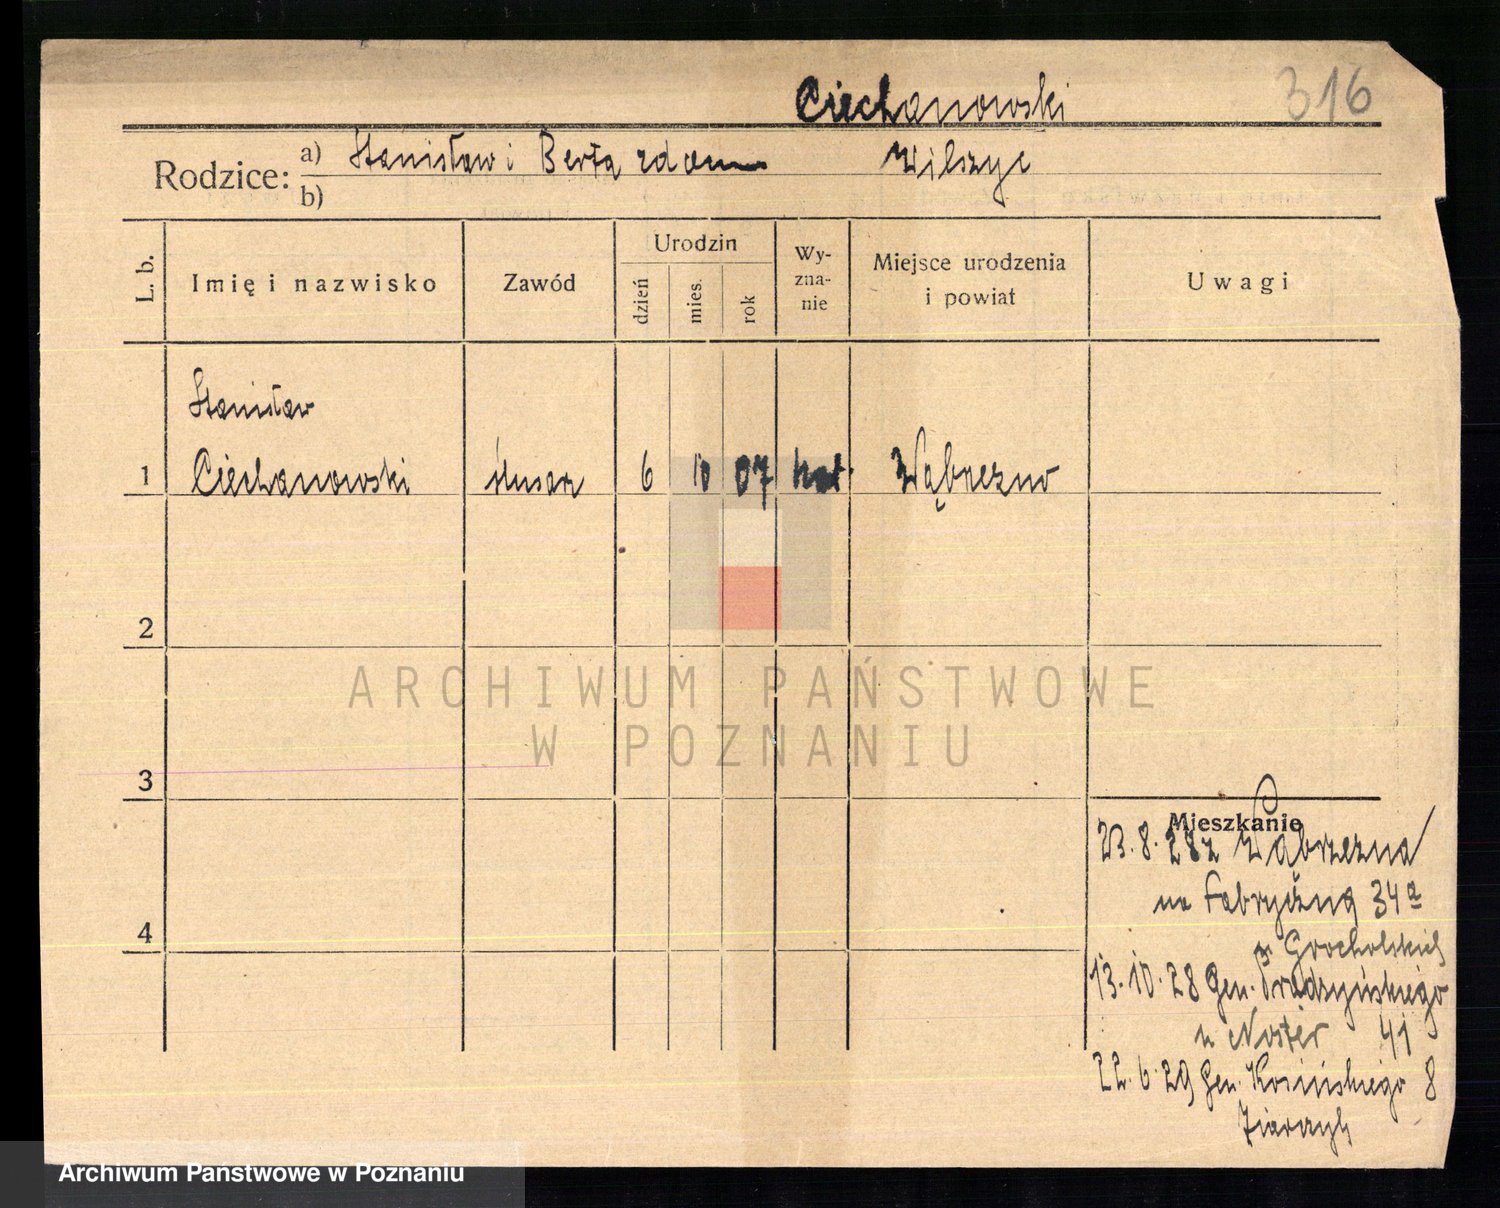 316
Ciechanowski
Rodzice: a) Stanisław i Berta z dom Wilszyc
b)
L. b. Imię i nazwisko Zawód Urodzin dzień mies. rok Wy-zna-nie Miejsce urodzenia i powiat Uwagi
Stanisław
1 Ciechanowski ślusarz 6 10 07 kat. Wąbrzeźno
2
ARCHIWUM PAŃSTWOWE
W POZNANIU
3
Mieszkanie
23. 8. 28 z Wąbrzezna
na Fabryczną 34a
4
u Grocholskich
13. 10. 28 Gen. Prądzyńskiego
u Noster 41
22. 6. 29 Gen. Kosińskiego 8
Archiwum Państwowe w Poznaniu